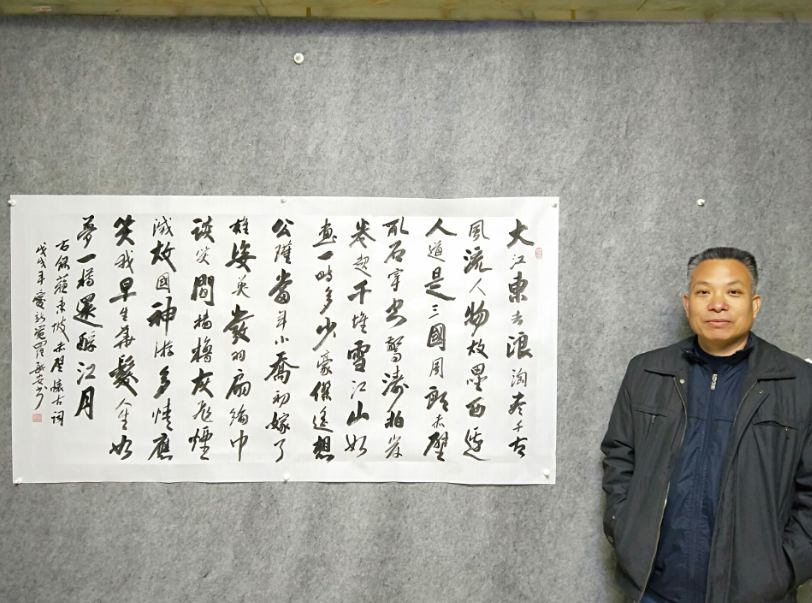 大江東去浪淘尽千古
風流人物故壘西邊
人道是三國周郎赤壁
乱石穿空驚濤拍岸
卷起千堆雪江山如
畫一時多少豪傑遙想
公瑾當年小喬初嫁了
雄姿英發羽扇綸巾
談笑間檣櫓灰飛煙
滅故國神游多情應
笑我早生華髮人生如
夢一樽還酹江月
右錄蘇東坡赤壁懷古詞
戊戌年